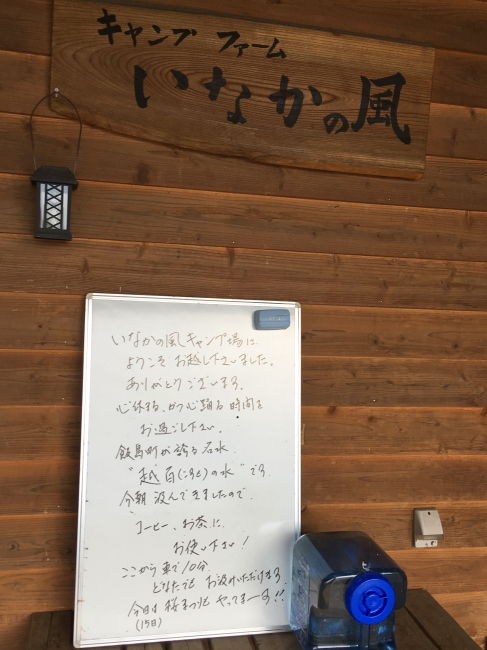 キャンプ ファーム
いなかの風
いなかの風キャンプ場に
ようこそ お越し下さいました。
ありがとうございます。
心休まる、かつ心踊る時間を
お過ごし下さい。
飯島町が誇る名水
"越百(こすも)の水"です
今朝 汲んできましたので、
コーヒー、お茶に
お使い下さい!
ここから車で10分
どなたでも お汲みいただけます。
今日は桜まつりも やってまーす!!
(15日)